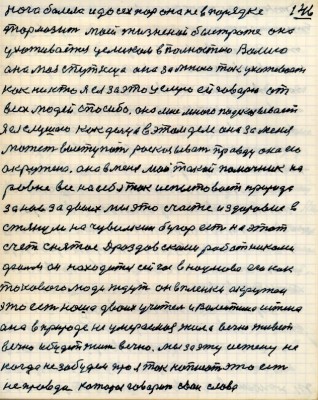 146
нога болела и до сех пор она не в порядке
тормозит мой жизненой быстроте она
ухаживает целиком и полностью Валею
она моя спутница она за мною так ухаживает
как никто я ей за это целую ей говорю от
всех людей спосибо, она мне много подсказывает
заслушаю как донца в этом деле она за меня
может выступать росказывать правду она его
окружено, она в меня мой такой помочник на
ровне все на себя так испытовает природа
за нов за двоих мы это счастие и здоровие в
стянули на чувилкин бугор есть на этот
счет снятое Дроздовским роботниками
филм он находится сейчас в наумова его как
токового люди ждут он в пленки окружон
это есть наша двоих учителя и Валентина истина
она в природе не умераемая жила вечно живет
вечно и будет жить вечно. мы за эту истену не
когда не забудем про я так напишем это есть
не правда которая говорит свои слова